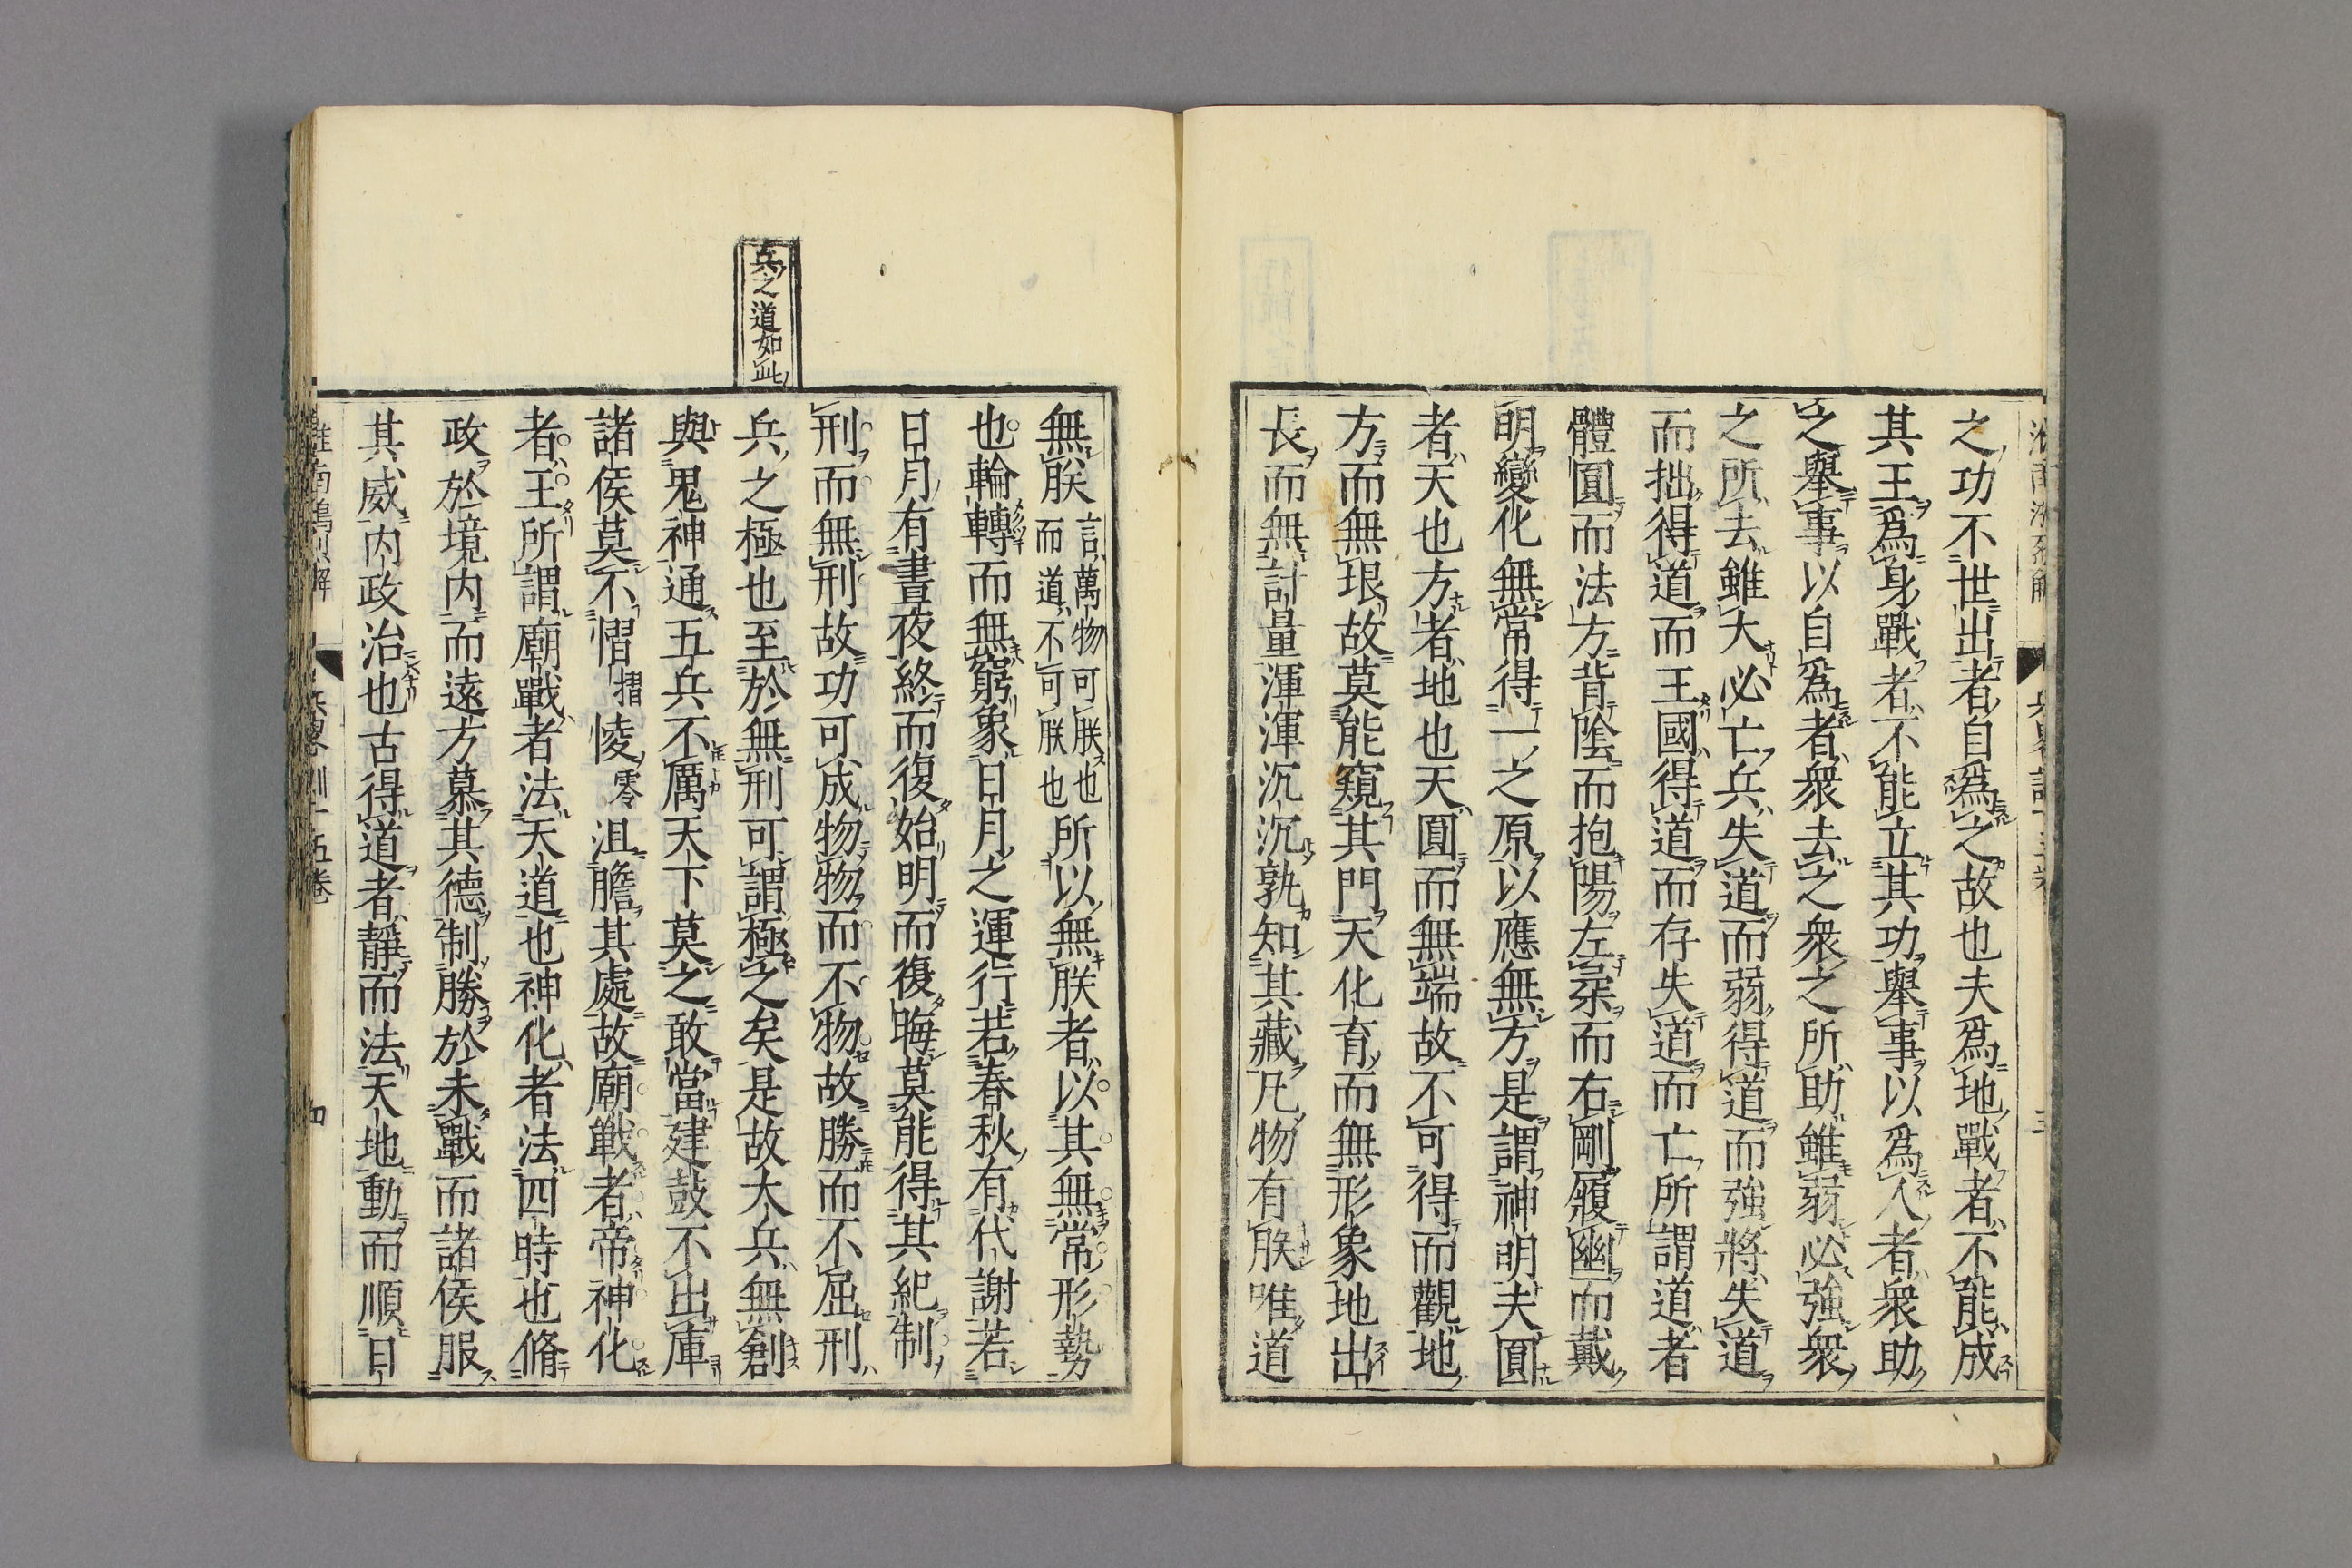 之功不世出者自爲之故也夫爲地戰者不能成
其王爲身戰者不能立其功舉事以爲人者衆助
之舉事以自爲者衆去之衆之所助雖弱必強衆
之所去雖大必亡兵失道而弱得道而強將失道
而拙得道而王國得道而存失道而亡所謂道者
體圓而法方背陰而抱陽左柔而右剛履幽而戴
明變化無常得一之原以應無方是謂神明夫圓
者天也方者地也天圓而無端故不可得而觀地
方而無垠故莫能窺其門天化育而無形象地出
長而無計量渾渾沉沉孰知其藏凡物有朕唯道
無朕
言萬物可朕也
而道不可朕也
所以無朕者以其無常形勢
也輪轉而無窮象日月之運行若春秋有代謝若
日月有晝夜終而復始明而復晦莫能得其紀制
刑而無刑故功可成物物而不物故勝而不屈刑
兵之道如此
兵之極也至於無刑可謂極之矣是故大兵無創
與鬼神通五兵不厲天下莫之敢當建鼓不出庫
諸侯莫不慴摺㥄零沮膽其處故廟戰者帝神化
者王所謂廟戰者法天道也神化者法四時也脩
政於境內而遠方慕其德制勝於未戰而諸侯服
其威內政治也古得道者靜而法天地動而順日
淮南鴻烈解 兵略訓十五卷 四